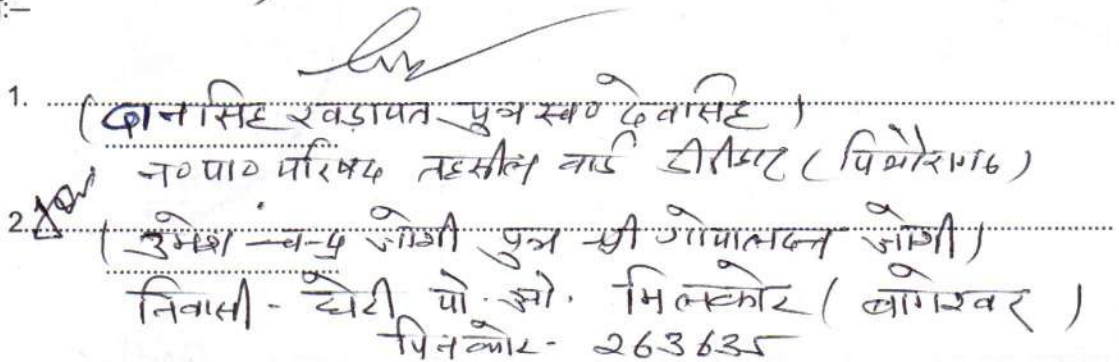 :–
1. (दानसिंह खड़ायत पुत्र स्व० देवासिंह)
न०पा० परिषद तहसील वार्ड डीडीहाट (पिथौरागढ़)
2. (उमेश चन्द्र जोशी पुत्र श्री गोपालदत्त जोशी)
निवासी - घेटी पो. ओ. मिलकोट (बागेश्वर)
पिनकोड - 263635